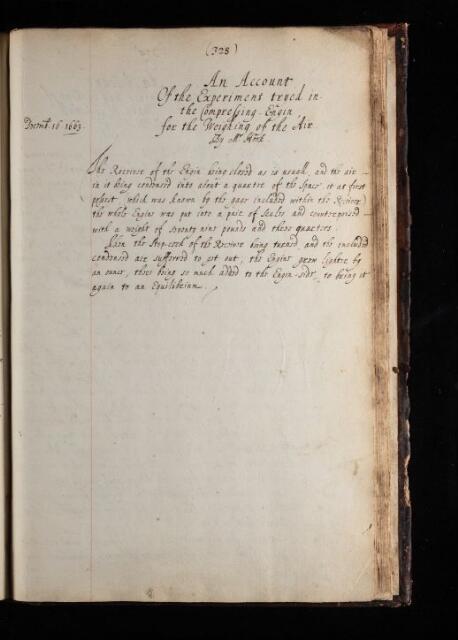 (328)
An Account
Of the Experiment tryed in
the Compressing-Engin
for the Weighing of the Air
By Mr. Hook.
Decemb. 16 1663.
The Receiver of the Engin being closed as is usuall, and the air
in it being condensed into about a quarter of the space it at first
possest (which was known by the gage included within the Receiver)
the whole Engine was put into a paire of Scales and counterpoised
with a weight of seventy nine pounds and three quarters.
Then the Stop-cock of the Receiver being turned, and the included
condensed air suffered to get out, the Engine grew lighter by
an ounce, there being so much added to the Engin-side, to bring it
again to an Equilibrium.